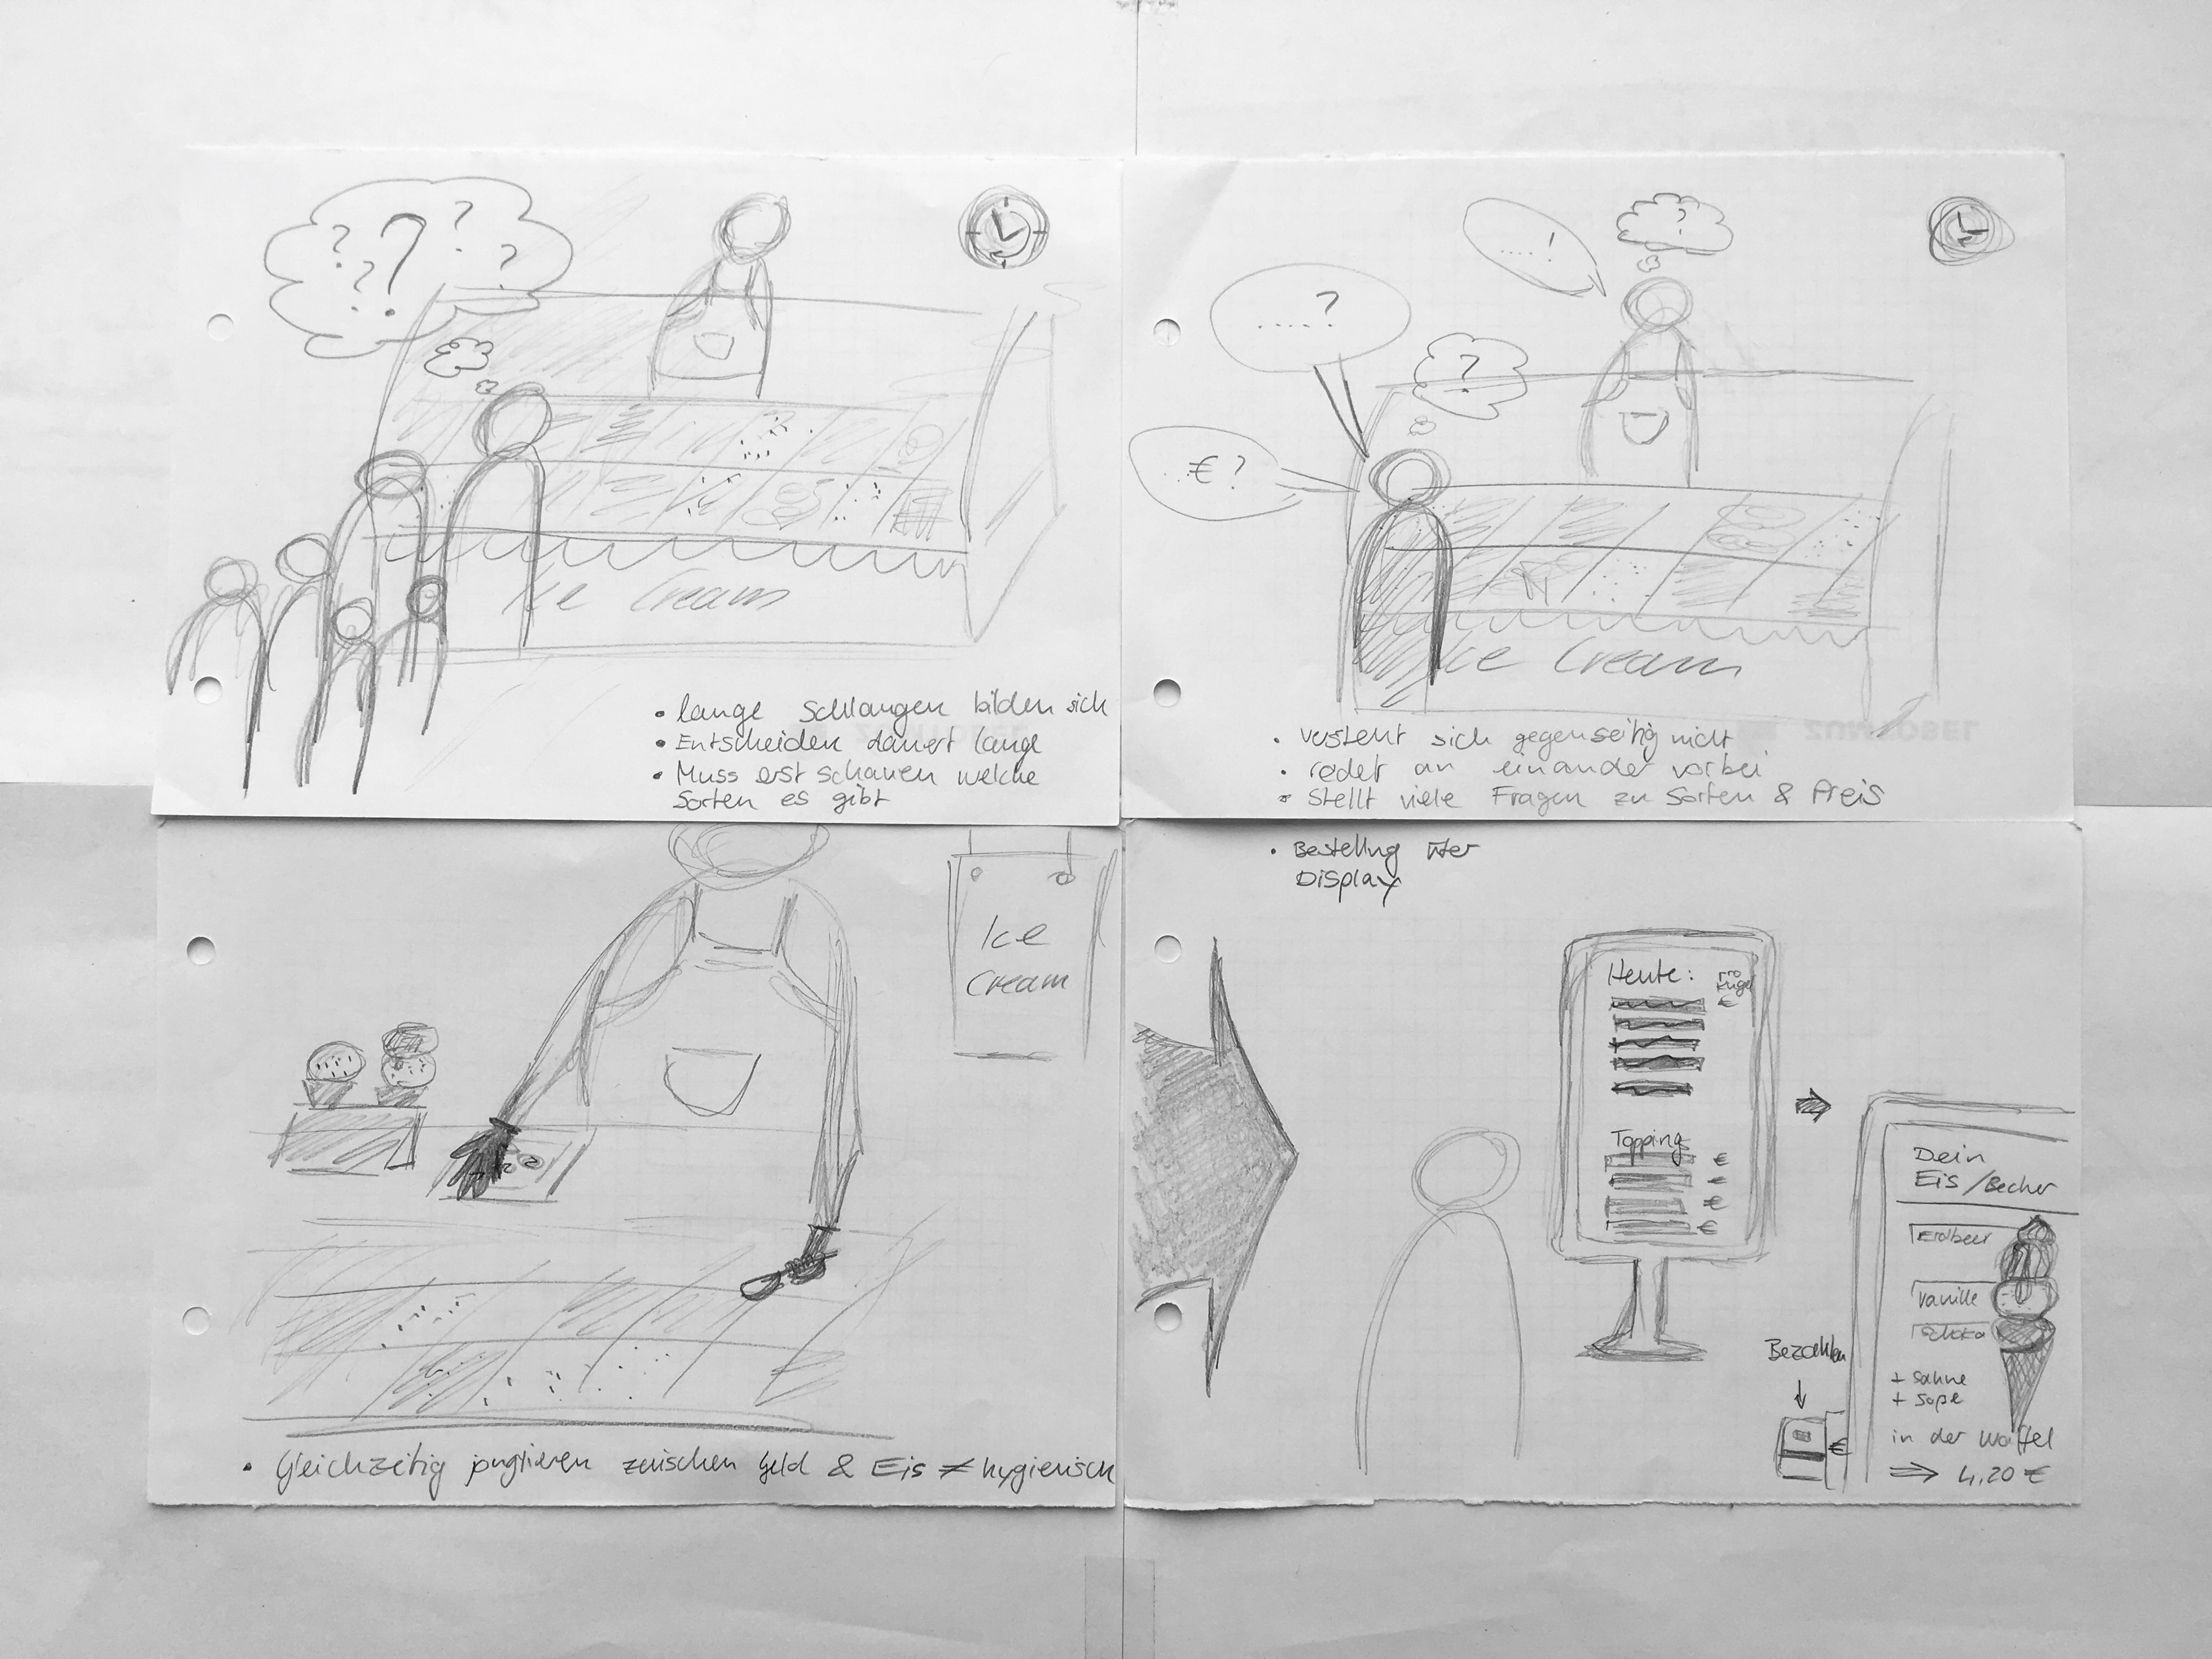 ? ? ? ? ? ?
Ice Cream
• lange Schlangen bilden sich
• Entscheiden dauert lange
• Muss erst schauen welche
Sorten es gibt
.....!
?
.....?
?
..€?
Ice Cream
• versteht sich gegenseitig nicht
• redet an einander vorbei
• Stellt viele Fragen zu Sorten & Preis
Ice
Cream
• Gleichzeitig jonglieren zwischen Geld & Eis ≠ hygienisch
• Bestellng über
Display
Heute: Pro
Kugel
€
Topping
€
€
€
€
Dein
Eis/Becher
Erdbeer
Vanille
Schoko
+ Sahne
+ Soße
in der Waffel
⇒ 4,20 €
Bezahlen
↓
€